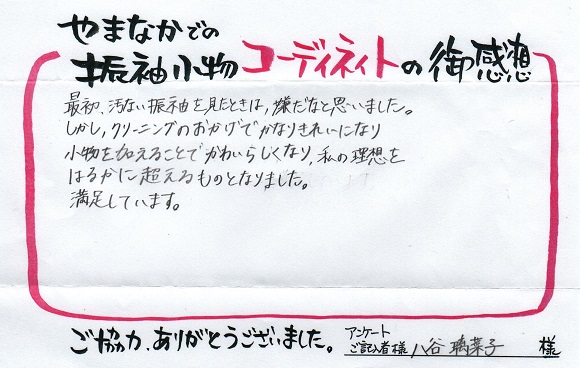 やまなかでの
振袖小物コーディネイトの御感想
最初、汚ない振袖を見たときは、嫌だなと思いました。
しかし、クリーニングのおかげでかなりきれいになり
小物を加えることでかわいらしくなり、私の理想を
はるかに超えるものとなりました。
満足しています。
ご協力、ありがとうございました。
アンケート
ご記入者様 八谷 璃菜子 様